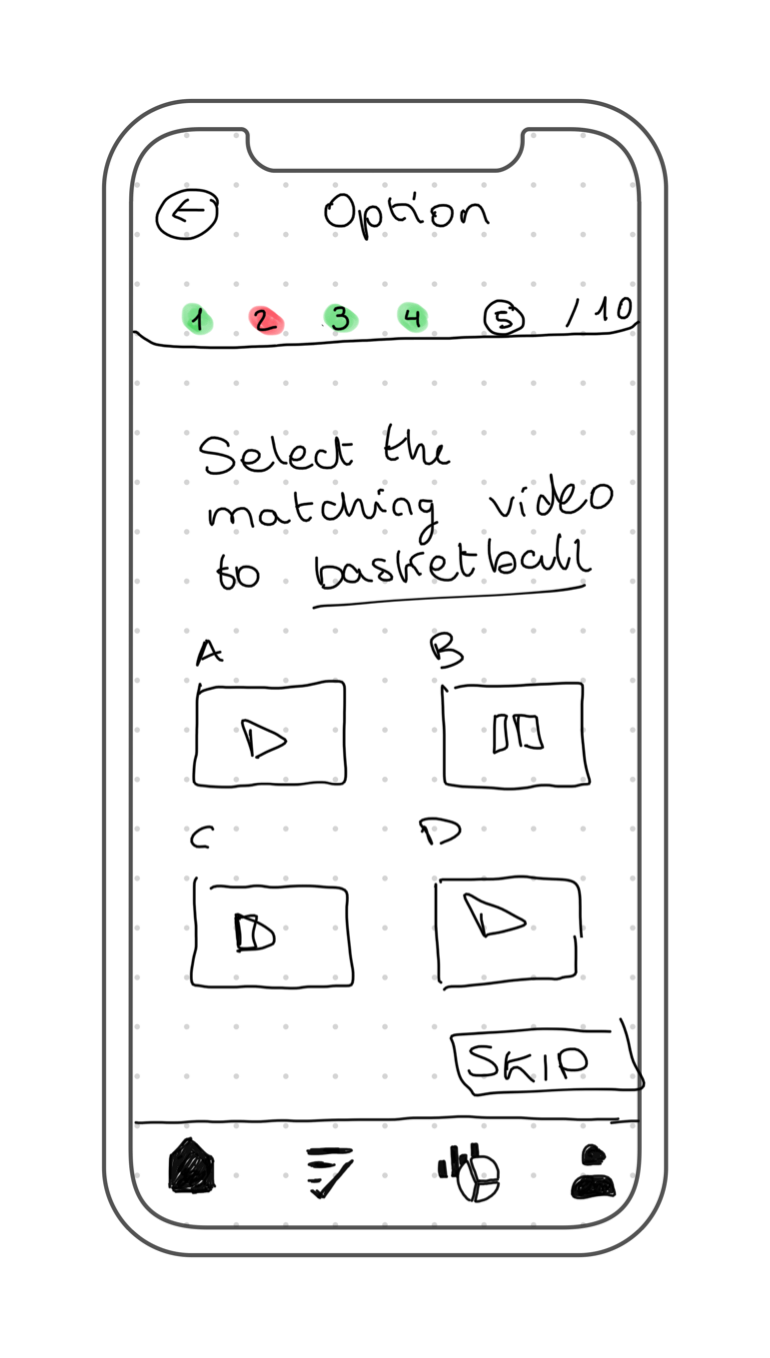 Option
1 2 3 4 5 / 10
Select the
matching video
to basketball
A B
C D
SKIP